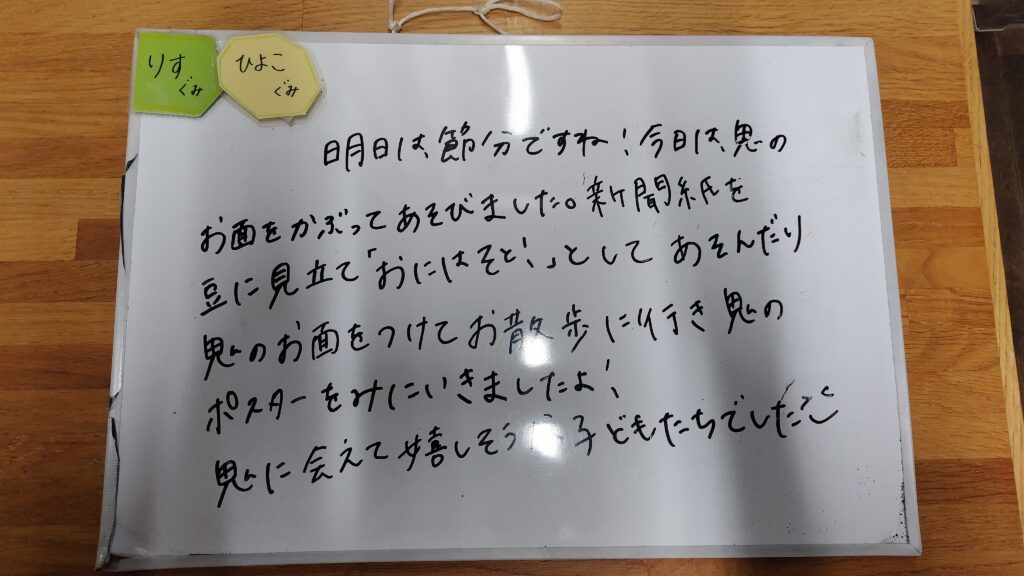 りす
ぐみ
ひよこ
ぐみ
明日は、節分ですね!今日は、鬼の
お面をかぶってあそびました。新聞紙を
豆に見立て「おにはそと!」としてあそんだり
鬼のお面をつけてお散歩に行き鬼の
ポスターをみにいきましたよ!
鬼に会えて嬉しそうな子どもたちでした